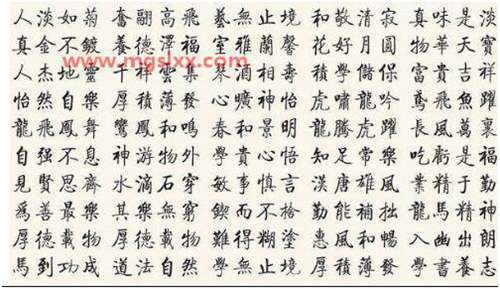 人淡如菊 奮翮高飛 藝無止境 和敬清寂 真味是淡
真金不鍍 養德澤福 室雅蘭馨 花好月圓 物華天寶
www.mgslxx.com
人杰地靈 千祥雲集 琴酒相壽 學儲保 富貴吉祥
怡然自樂 厚積薄發 心曠神怡 虎嘯龍吟 鳶飛魚躍
龍飛鳳舞 鸞鳳和鳴 春和景明 龍騰虎躍 長風萬裏
自强不息 神游物外 學貴心悟 知足常樂 吃虧是福
見賢思齊 水滴石穿 敏事慎言 漢唐雄風 業精于勤
爲善最樂 其樂無窮 鍥而不捨 勤能補拙 龍馬精神
厚德載物 厚德載物 難得糊塗 惠風和暢 入幽出朗
馬到功成 道法自然 學無止境 厚積薄發 學書養